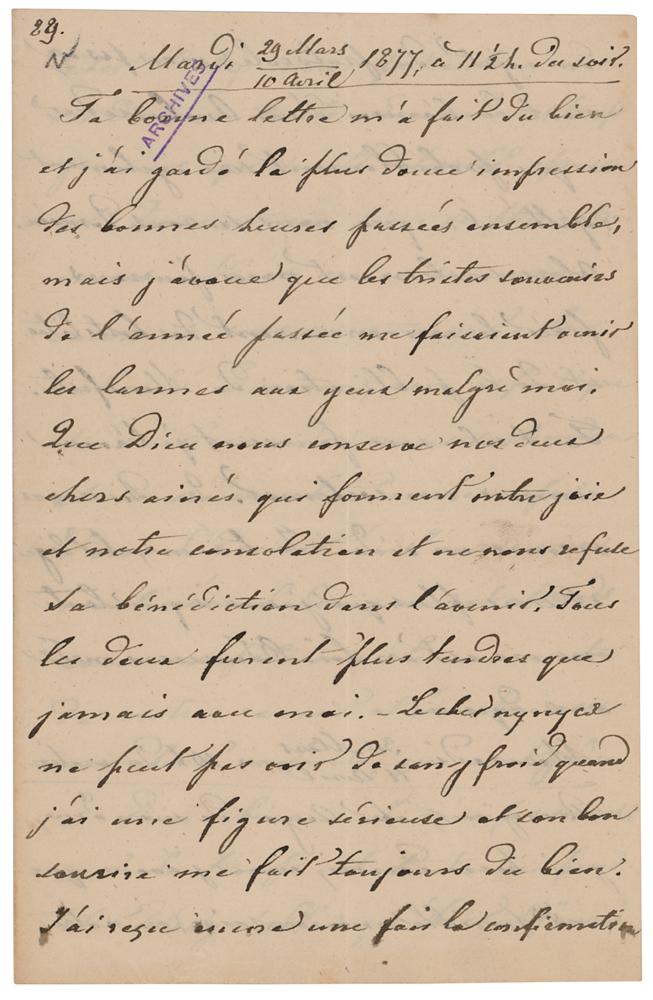 29.
Mardi 29 Mars / 10 Avril 1877, à 11½ h. du soir.
ARCHIVES
Ta bonne lettre m'a fait du bien
et j'ai gardé la plus douce impression
des bonnes heures passées ensemble,
mais j'avoue que les tristes souvenirs
de l'année passée me faisaient venir
les larmes aux yeux malgré moi.
Que Dieu nous conserve nos deux
chers ainés qui forment notre joie
et notre consolation et ne nous refuse
Sa bénédiction dans l'avenir. Tous
les deux furent plus tendres que
jamais avec moi. – Le cher
ne peut pas voir de sang froid quand
j'ai une figure sérieuse et son bon
sourire me fait toujours du bien.
J'ai reçu encore une fois la confirmation